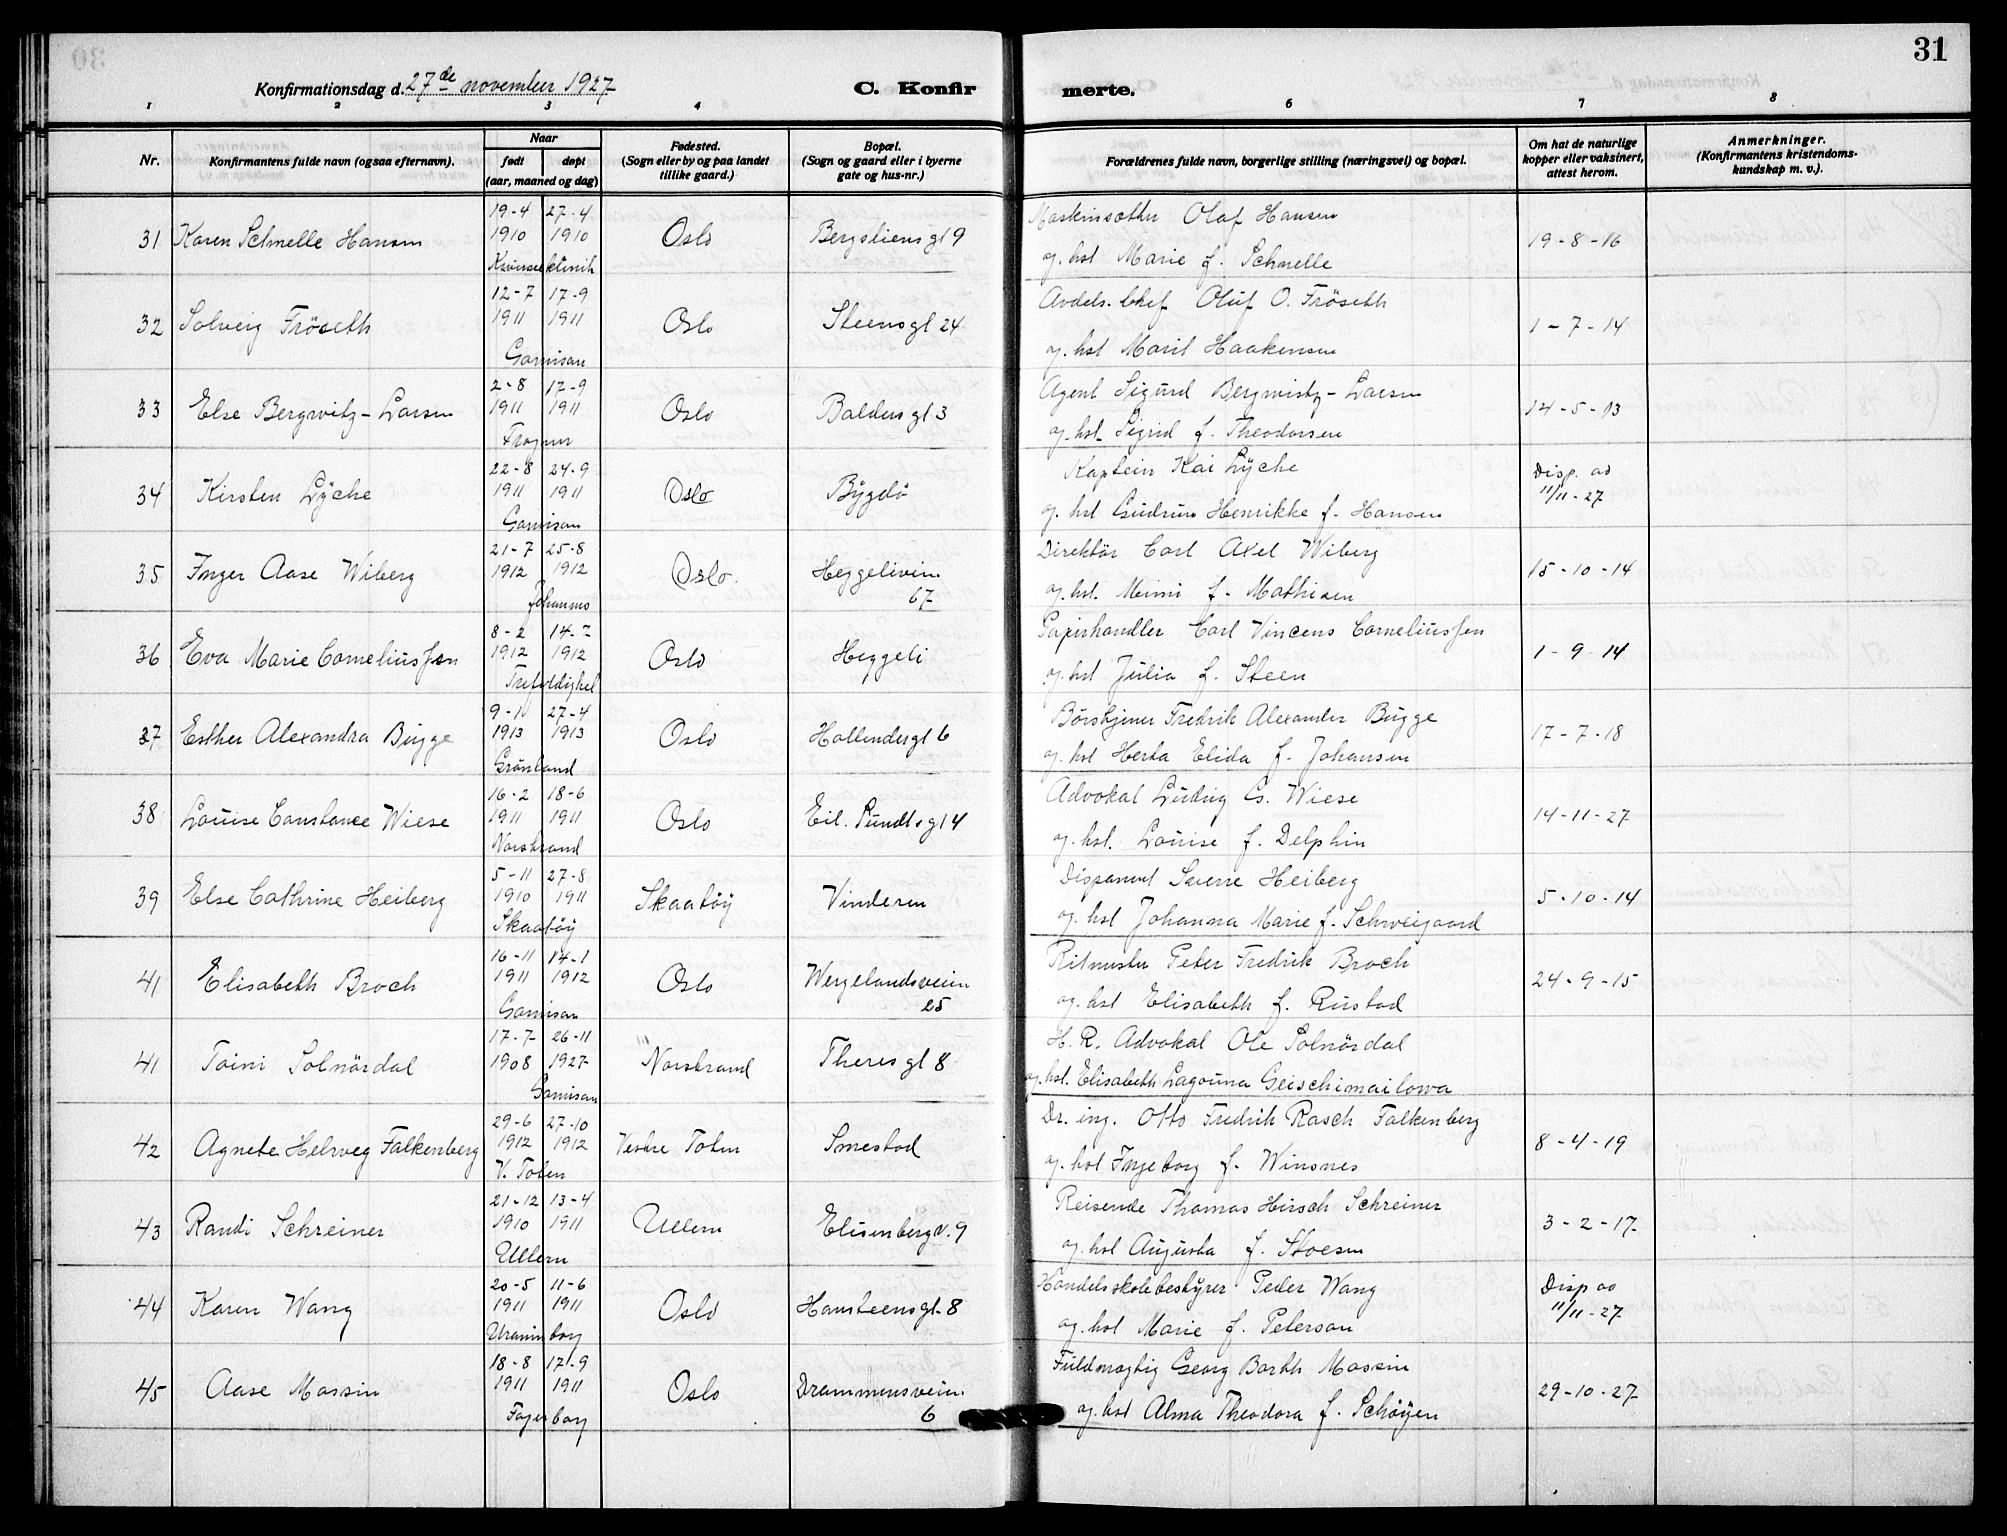 31
Konfirmationsdag d. 27de november 1927
C. Konfirmerte.
1 2 3 4 6 7 8
Nr.
Konfirmantens fulde navn (ogsaa efternavn).
Naar
født
døpt
(aar, maaned og dag)
Fødested.
(Sogn eller by og paa landet
tillike gaard.)
Bopæl.
(Sogn og gaard eller i byerne
gate og hus-nr.)
Forældrenes fulde navn, borgerlige stilling (næringsvei) og bopæl.
Om hat de naturlige
kopper eller vaksinert,
attest herom.
Anmerkninger.
(Konfirmantens kristendoms-
kundskap m. v.).
31 Karen Schnelle Hansen 19-4 1910 27-4 1910 Oslo Bergsliens gt 9
Maskinsætter Olaf Hansen
og hst Marie f. Schnelle
19-8-16
32 Solveig Fröseth 12-7 1911 17-9 1911 Garnison Oslo Steens gt 24
Avdels. chef Oluf O. Fröseth
og. hst Marit Haakensen
1-7-14
33 Else Bergwitz-Larsen 2-8 1911 17-9 1911 Frogner Oslo Balders gt 3
Agent Sigurd Bergwitz-Larsen
og. hst. Sigrid f. Theodorsen
14-5-13
34 Kirsten Lyche 22-8 1911 24-9 1911 Garnison Oslo Bygdö
Kaptein Kai Lyche
og. hst Gudrun Henrikke f. Hansen
Disp. av
11/11-27
35 Inger Aase Wiberg 21-7 1912 25-8 1912 Johannes Oslo. Heggelivin
67
Direktör Carl Axel Wiberg
og. hst. Mimi f. Mathisen
15-10-14
36 Eva Marie Corneliussen 8-2 1912 14-7 1912 Trefoldighet Oslo Heggeli
Papirhandler Carl Vincens Corneliussen
og. hst Julia f. Steen
1-9-14
37 Esther Alexandra Bugge 9-1 1913 27-4 1913 Grönland Oslo Hollender gt 6
Börskjener Fredrik Alexander Bugge
og. hst Herta Elida f. Johansen
17-7-18
38 Louise Constance Wiese 16-2 1911 18-6 1911 Norstrand Oslo Eil. Sundts gt 4
Advokat Ludvig Cs. Wiese
og. hst. Louise f. Delphin
14-11-27
39 Else Cathrine Heiberg 5-11 1910 27-8 1911 Skaatöy Skaatöy Vinderen
Disponent Sverre Heiberg
og. hst Johanna Marie f. Schweigaard
5-10-14
41 Elisabeth Broch 16-11 1911 14-1 1912 Garnison Oslo Wergelandsveien
25
Ritmester Peter Fredrik Broch
og. hst Elisabeth f. Rustad
24-9-15
41 Taini Solnördal 17-7 1908 26-11 1927 Garnison Norstrand Theres gt 8
H. R. Advokat Ole Solnördal
og. hst. Elisabeth Lagouna Geischimailowa
42 Agnete Helweg Falkenberg 29-6 1912 27-10 1912 V. Toten Vestre Toten Smestad
Dr. ing. Otto Fredrik Rasch Falkenberg
og. hst Ingeborg f. Winsnes
8-4-19
43 Randi Schreiner 21-12 1910 13-4 1911 Ullern Ullern Elisenberg v. 9
Reisende Thomas Hirsch Schreiner
og. hst Augusta f. Stoesen
3-2-17
44 Karen Wang 20-5 1911 11-6 1911 Uranienborg Oslo Hansteens gt. 8
Handelsskolebestyrer Peder Wang
og. hst Marie f. Peterson
Disp av
11/11-27
45 Aase Massin 18-8 1911 17-9 1911 Fagerborg Oslo Drammensveien
6
Fuldmægtig Georg Barth Massin
og. hst Alma Theodora f. Schöyen
29-10-27